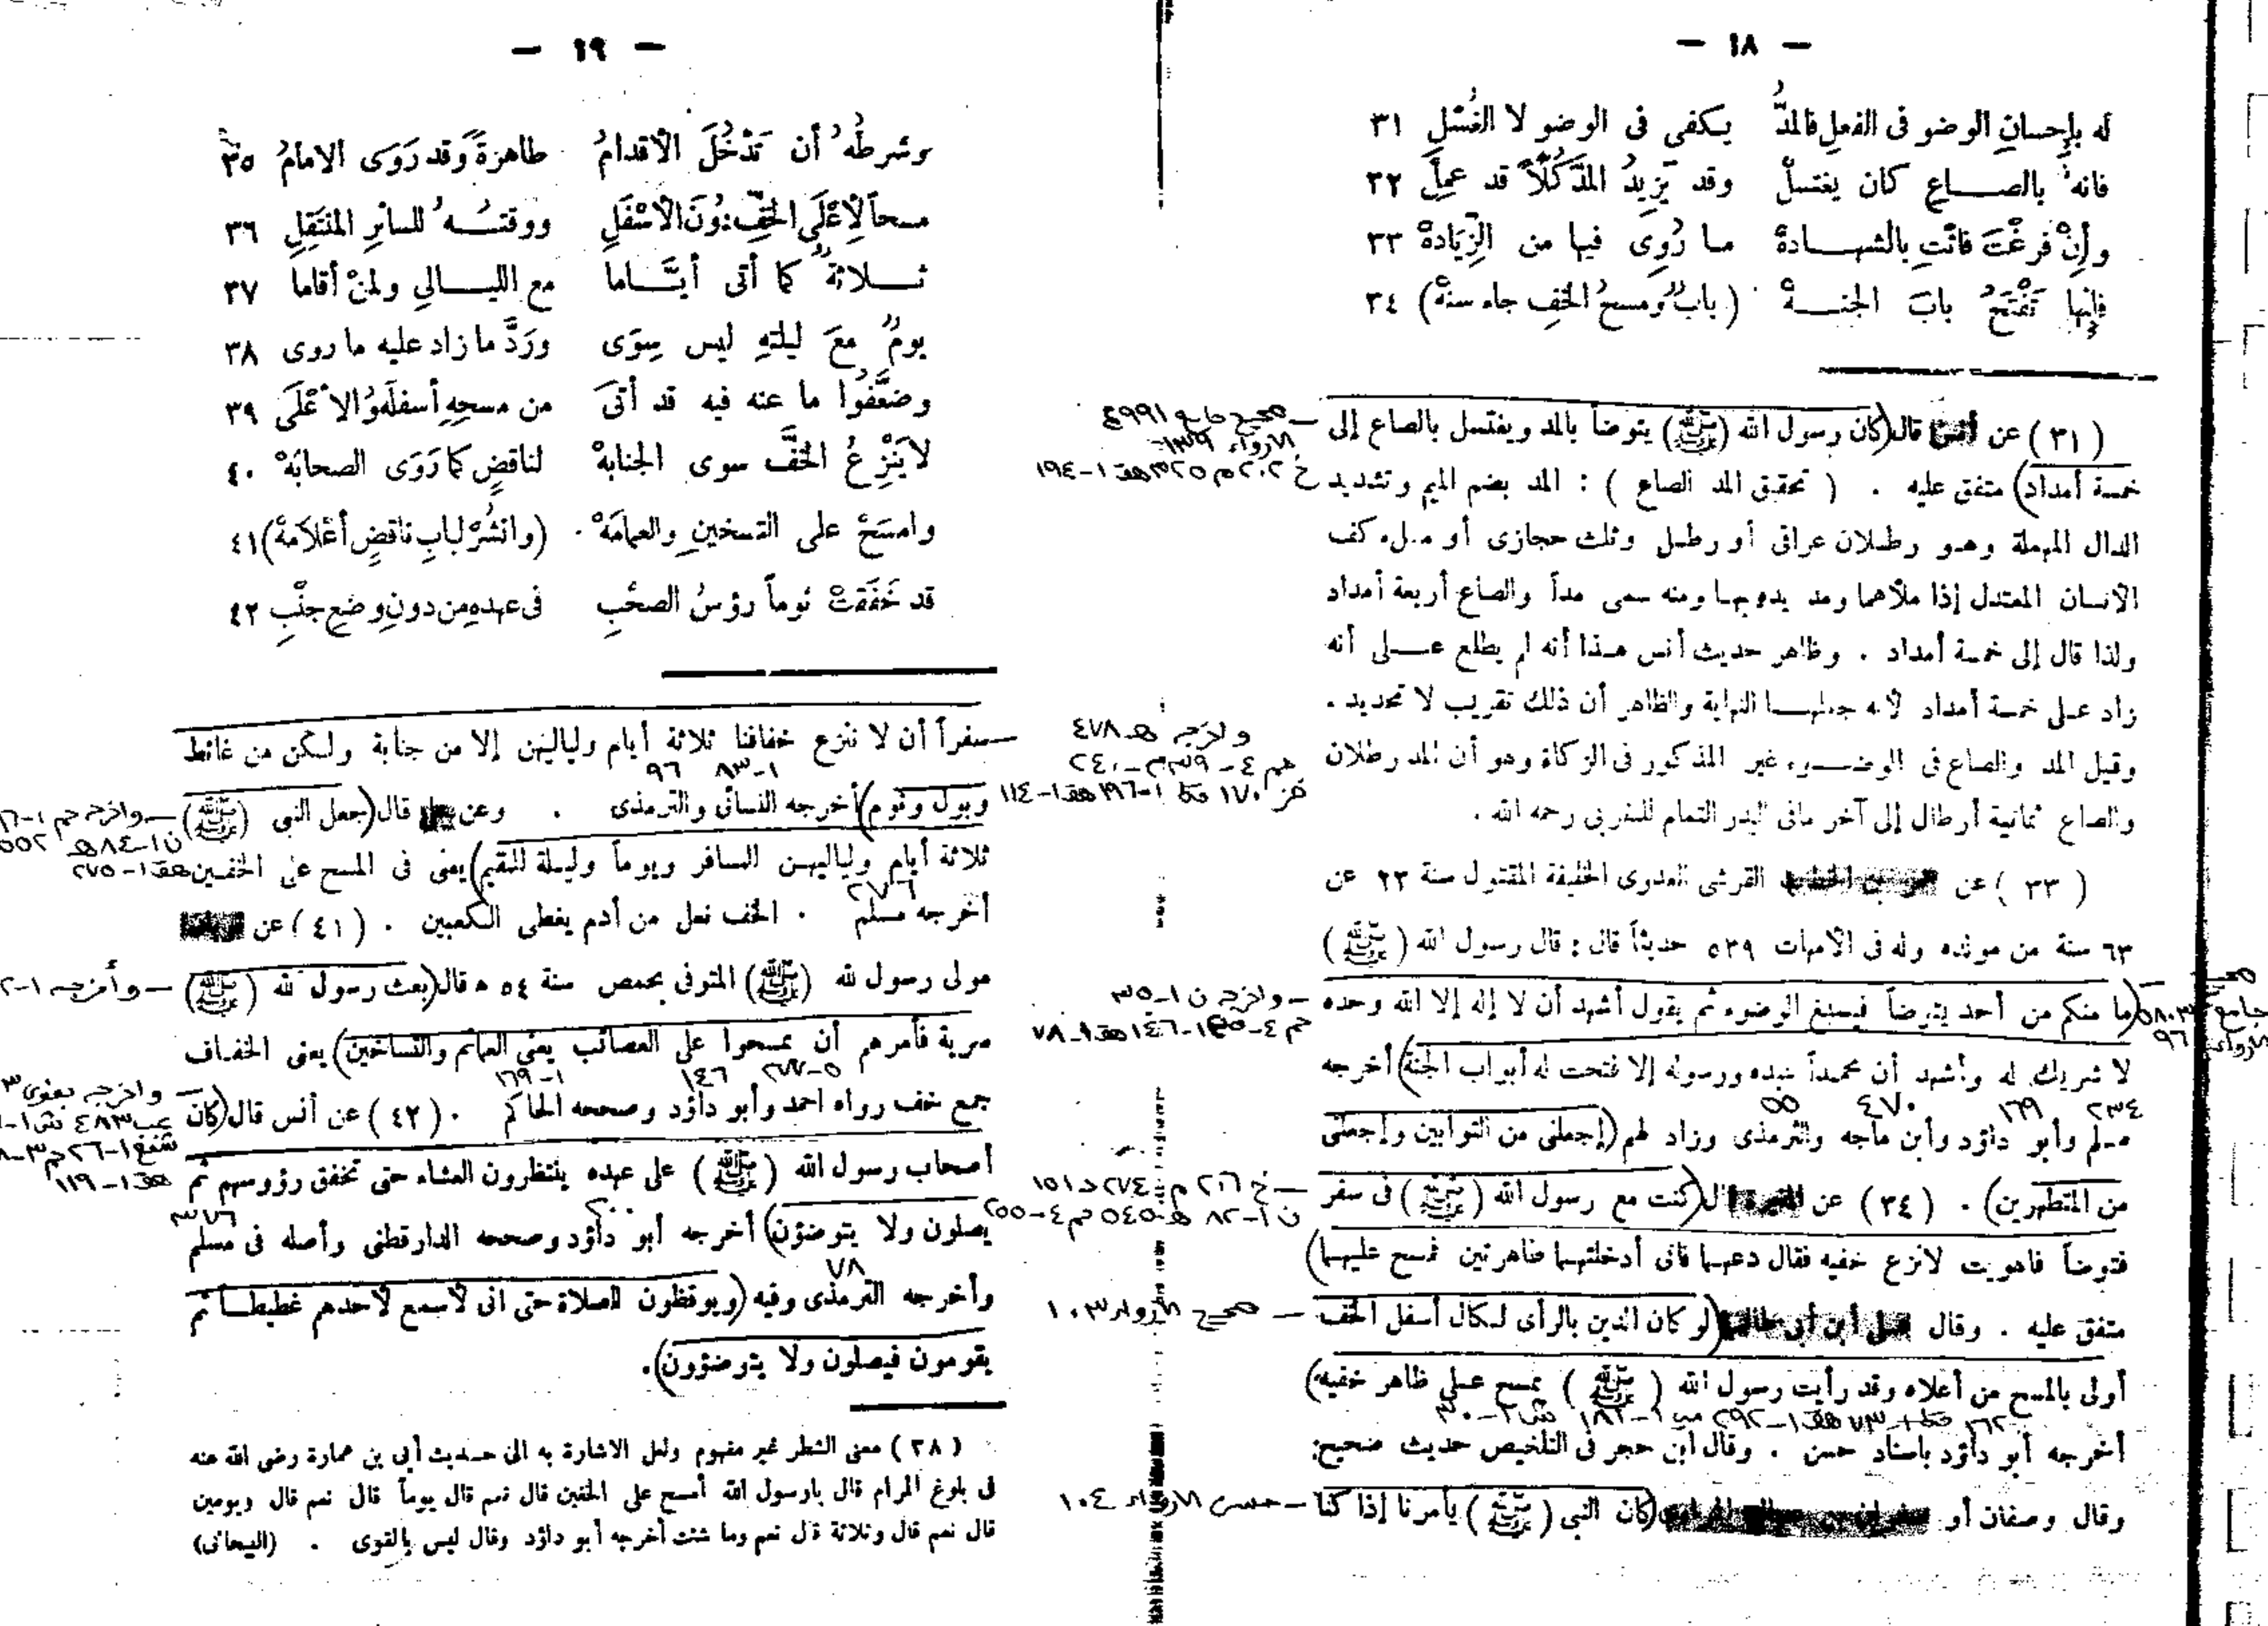 — ١٨ —
له بإحسانِ الوضو فى الفعلِ فالمدُّ يكفى فى الوضو لا الغُسْلِ ٣١
فانه بالصاعِ كان يغتسلْ وقد يَزِيدُ المدَّ كُلًّا قد عمِلَ ٣٢
وأِنْ فرغْتَ فائتِ بالشهادهْ ما رُوِىَ فيها من الزِّيَادهْ ٣٣
فإنها تَفْتَحُ بابَ الجنهْ (بابٌ ومسحُ الخفِ جاء سنهْ) ٣٤
(٣١) عن أنس قال (كان رسول الله (ﷺ) يتوضأ بالمد ويغتسل بالصاع إلى
خمسة أمداد) متفق عليه . ( تحقيق المد الصاع ) : المد بضم الميم وتشديد
الدال المهملة وهو رطلان عراقى أو رطل وثلث حجازى أو ملء كف
الانسان المعتدل إذا ملأهما ومد يده بهما ومنه سمى مداً والصاع أربعة أمداد
ولذا قال إلى خمسة أمداد . وظاهر حديث أنس هذا أنه لم يطلع على أنه
زاد على خمسة أمداد لأنه جعلها النهاية والظاهر أن ذلك تقريب لا تحديد .
وقيل المد والصاع فى الوضوء غير المذكور فى الزكاة وهو أن المد رطلان
والصاع ثمانية أرطال إلى آخر مافى البدر التمام للمغربى رحمه الله .
(٣٣) عن القرشى العدوى الخليفة المقتول سنة ٢٣ عن
٦٣ سنة من مولده وله فى الأمهات ٥٣٩ حديثاً قال : قال رسول الله (ﷺ)
(ما منكم من أحد يتوضأ فيسبغ الوضوء ثم يقول أشهد أن لا إله إلا الله وحده
لا شريك له وأشهد أن محمداً عبده ورسوله إلا فتحت له أبواب الجنة) أخرجه
٢٣٤ ١٦٩ ٤٧٠ ٥٥
مسلم وأبو داؤد وأبن ماجه والترمذى وزاد لهم (إجعلنى من التوابين وإجعلنى
من المتطهرين) . (٣٤) عن المغيرة قال (كنت مع رسول الله (ﷺ) فى سفر
فتوضأ فاهويت لانزع خفيه فقال دعهما فانى أدخلتهما طاهرتين فمسح عليهما)
متفق عليه . وقال على أبن أبى طالب (لو كان الدين بالرأى لكان أسفل الخف
أولى بالمسح من أعلاه وقد رأيت رسول الله (ﷺ) يمسح على ظاهر خفيه)
أخرجه أبو داؤد باسناد حسن . وقال ابن حجر فى التلخيص حديث صحيح:
وقال وصفان أو (كان النبى (ﷺ) يأمرنا إذا كنا
صحيح جامع ٤٩٩١
الارواء ١٣٩
خ ٢٠٢ م ٣٢٥ هق ١-١٩٤
صحيح
جامع ٥٨٠٣
الارواء ٩٦
واخرجه ن ١-٣٥
خ ٢٠٦ م ٢٧٤ د ١٥١
ن ١-٨٢ هـ ٥٤٥ حم ٤-٢٥٥
صحيح الارواء ١٠٣
حسن الارواء ١٠٤
— ١٩ —
وشرطُه أن تَدْخُلَ الأقدامُ طاهرةً وقد رَوَى الامامُ ٣٥
مسحاً لأِعْلَى الخفِّ دُونَ الأسْفَلِ ووقتُه للسائرِ المنتَقِلِ ٣٦
ثلاثةٌ كما أتى أيَّاما مع الليالى ولمنْ أقاما ٣٧
يومٌ معَ ليلتهِ ليس سِوَى ورَدَّ ما زاد عليه ما روى ٣٨
وضعَّفُوا ما عنه فيه قد أتىَ من مسحِهِ أسفلَه وُالأعْلَى ٣٩
لا يَنْزِعُ الخفَّ سوى الجنابهْ لناقضٍ كما رَوَى الصحابَهْ ٤٠
وامسَحْ على التسخينِ والعمامَهْ . (وانشُرْ لبابِ ناقضٍ أعْلاَمَهْ) ٤١
قد خَفَقَتْ نوماً رؤسُ الصحْبِ فى عهدهِ من دونِ وضعِ جنْبِ ٤٢
سفراً أن لا ننزع خفافنا ثلاثة أيام ولياليهن إلا من جنابة ولكن من غائط
١-٨٣ ٩٦
وبول ونوم) أخرجه النسائى والترمذى . وعن على قال (جعل النبى (ﷺ)
ثلاثة أيام ولياليهن للمسافر ويوماً وليلة للمقيم) يعنى فى المسح على الخفين
٢٧٦
أخرجه مسلم . الخف نعل من أدم يغطى الكعبين . (٤١) عن ثوبان
مولى رسول الله (ﷺ) المتوفى بحمص سنة ٥٤ ه قال (بعث رسول الله (ﷺ)
سرية فأمرهم أن يمسحوا على العصائب يعنى العمائم والتساخين) يعنى الخفاف
٥-٢٧٧ ١٤٦ ١-١٦٩
جمع خف رواه احمد وأبو داؤد وصححه الحاكم . (٤٢) عن أنس قال (كان
أصحاب رسول الله (ﷺ) على عهده ينتظرون العشاء حتى تخفق رؤوسهم ثم
٢٠٠ ٣٧٦
يصلون ولا يتوضؤن) أخرجه أبو داؤد وصححه الدارقطنى وأصله فى مسلم
٧٨
وأخرجه الترمذى وفيه (ويوقظون للصلاة حتى انى لأسمع لأحدهم غطيطاً ثم
يقومون فيصلون ولا يتوضؤون).
(٣٨) معنى الشطر غير مفهوم ولعل الاشارة به الى حديث أبي بن عمارة رضى الله عنه
فى بلوغ المرام قال يارسول الله أمسح على الخفين قال نعم قال يوماً قال نعم قال ويومين
قال نعم قال وثلاثة قال نعم وما شئت أخرجه أبو داؤد وقال ليس بالقوى . (البيحانى)
واخرجه هـ ٤٧٨
خز ١٧٠ قط ١-١٩٦ هق ١-١١٤